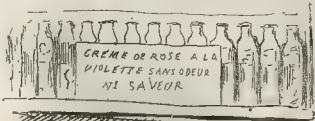 CRÈME DE ROSE A LA
VIOLETTE SANS ODEUR
NI SAVEUR